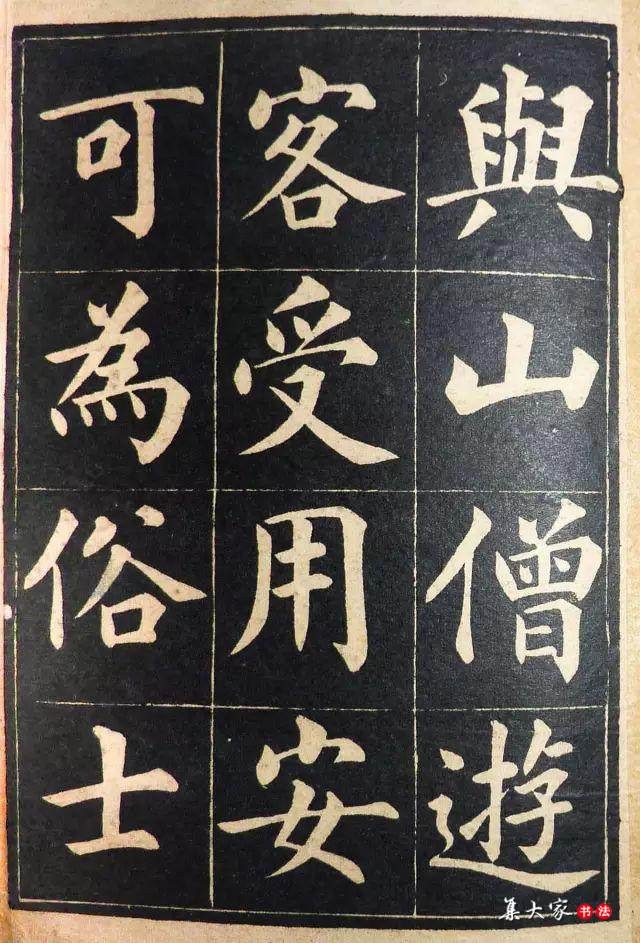 與山僧遊
客受用安
可為俗士
集大家书法